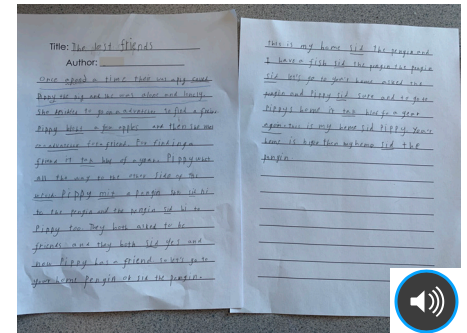 Title: The best friends
Author:
once apond a time ther was a pig called
Pippy the pig and she was alone and lonely.
She decided to go on a advencher to find a friend
Pippy a few apples and then she was
for a friend. For finding a
friend is hard of a year. Pippy went
all the way to the other side of the
Pippy mit a pengin she sid hi
to the pengin and the pengin sid hi to
Pippy too they both asked to be
friends and they both sed yes and
now Pippy has a friend so let's go to
your home pengin ok sid the pengin.
this is my home sid the pengin and
I have a fish sid the pengin the pengin
sid let's go to your home asked the
pengin and Pippy sid sure and to go to
Pippy's home is
this is my home sid Pippy. Your
home is biger then my home sid the
pengin